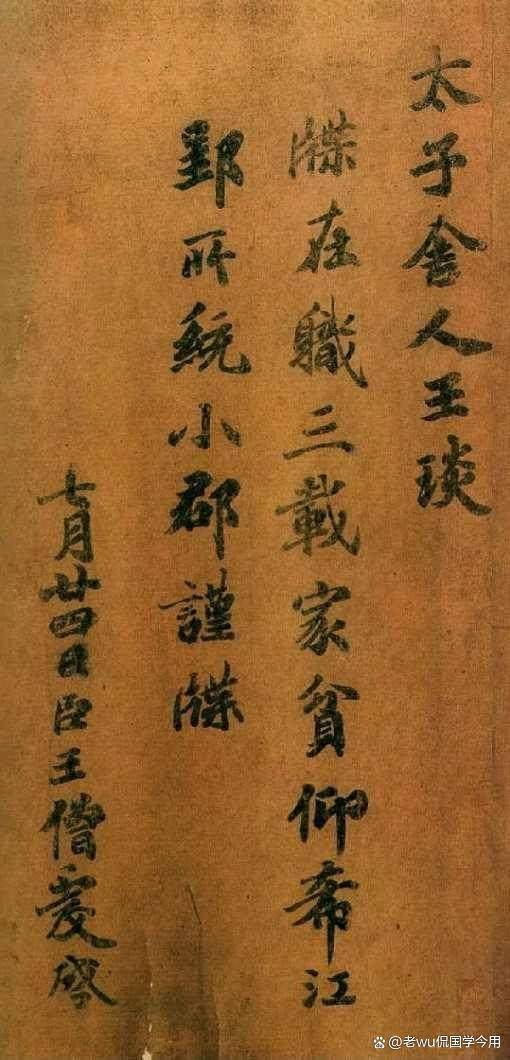 太子舍人王琰
牒在職三載家貧仰希江
郢所統小郡謹牒
七月廿四日臣王僧虔啓
@老wu侃国学今用